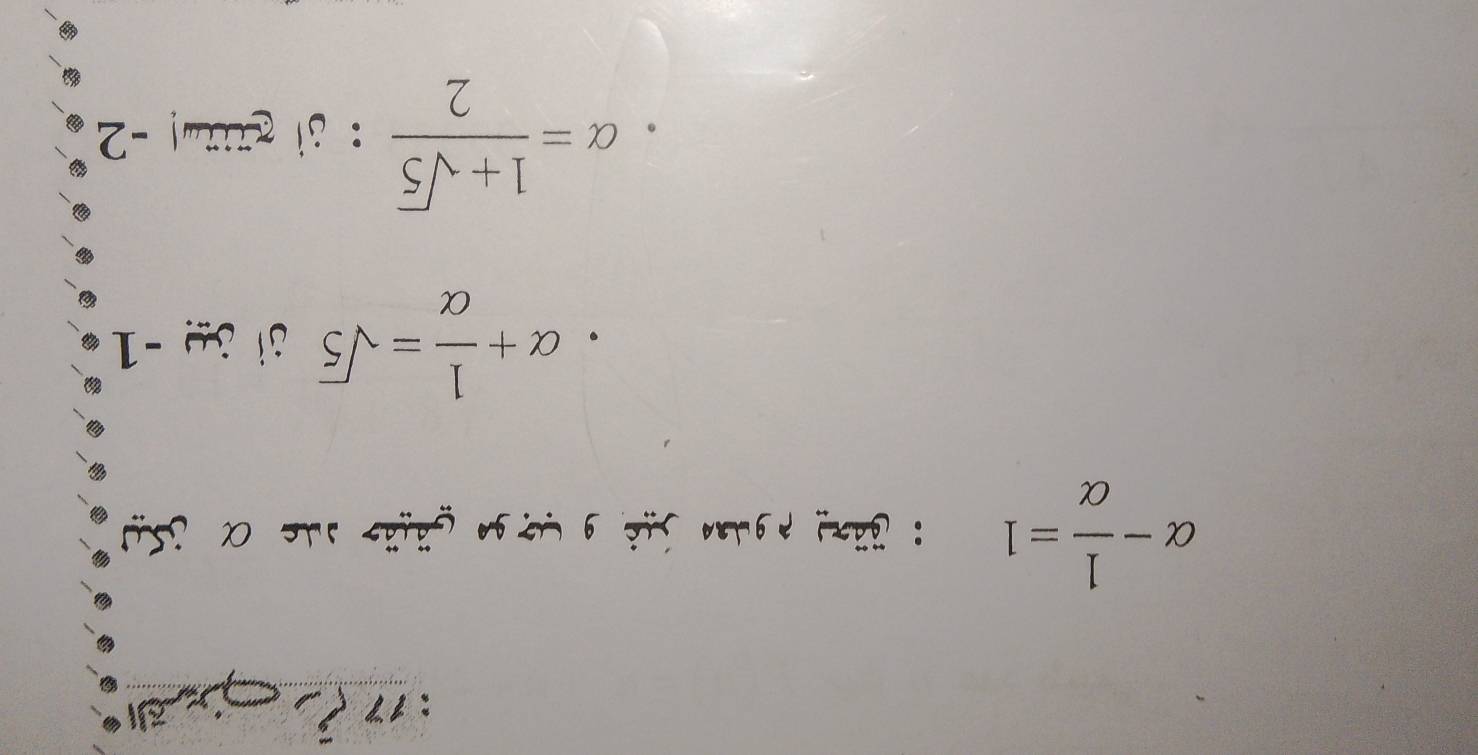 التمرين 17 :
ليكن α عدد حقيقي موجب و غير معدوم يحقق : α - 1/α = 1
1- بين أن α + 1/α = √5 .
2- إستنتج أن : α = (1 + √5)/2 .